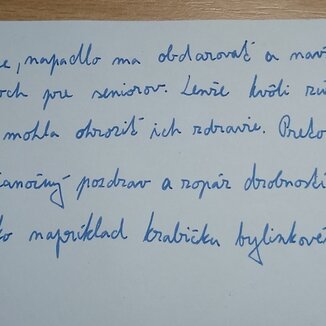 e, napadlo ma obdarovať a navš
och pre seniorov. Lenže kvôli rú
mohla ohroziť ich zdravie. Preto
ianočný pozdrav a zopár drobností
ko napríklad krabičku bylinkové